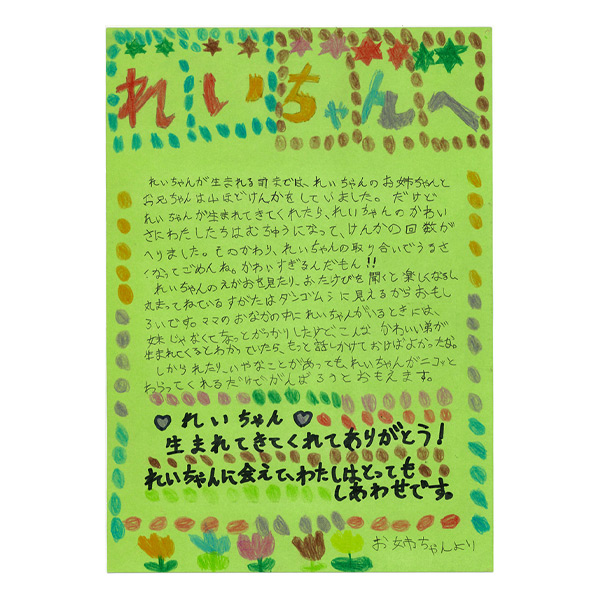 れいちゃんへ
れいちゃんが生まれる前までは、れいちゃんのお姉ちゃんと
お兄ちゃんは山ほどけんかをしていました。だけど
れいちゃんが生まれてきてくれたり、れいちゃんのかわい
さにわたしたちはむちゅうになって、けんかの回数が
へりました。そのかわり、れいちゃんの取り合いでうるさ
くなってごめんね。かわいすぎるんだもん!!
れいちゃんのえがおを見たり、おたけびを聞くと楽しくなるし
丸まってねているすがたはダンゴムシに見えるからおもし
ろいです。ママのおなかの中にれいちゃんがいるときには、
妹じゃなくてちょっとがっかりしたけどこんなかわいい弟が
生まれてくるとわかっていたら、もっと話しかけておけばよかったな。
しかられたり、いやなことがあっても、れいちゃんがニコッと
わらってくれるだけでがんばろうとおもえます。
♡れいちゃん♡
生まれてきてくれてありがとう!
れいちゃんに会えて、わたしはとっても
しあわせです。
お姉ちゃんより